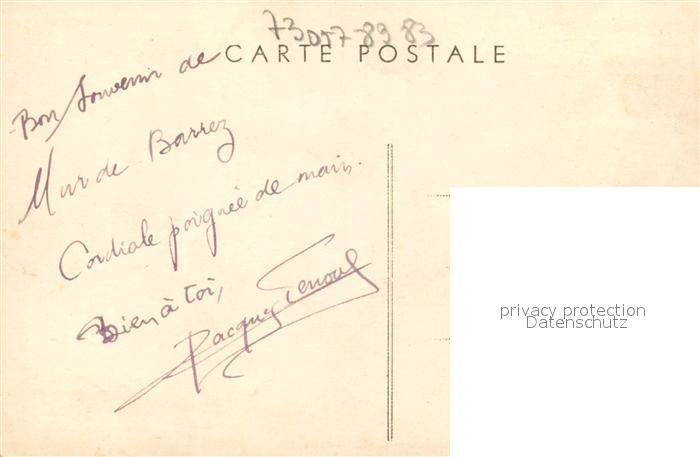 CARTE POSTALE
Bon Souvenir de
Mur de Barrez
Cordiale poignée de main.
Bien à toi,
Jacques
privacy protection
Datenschutz